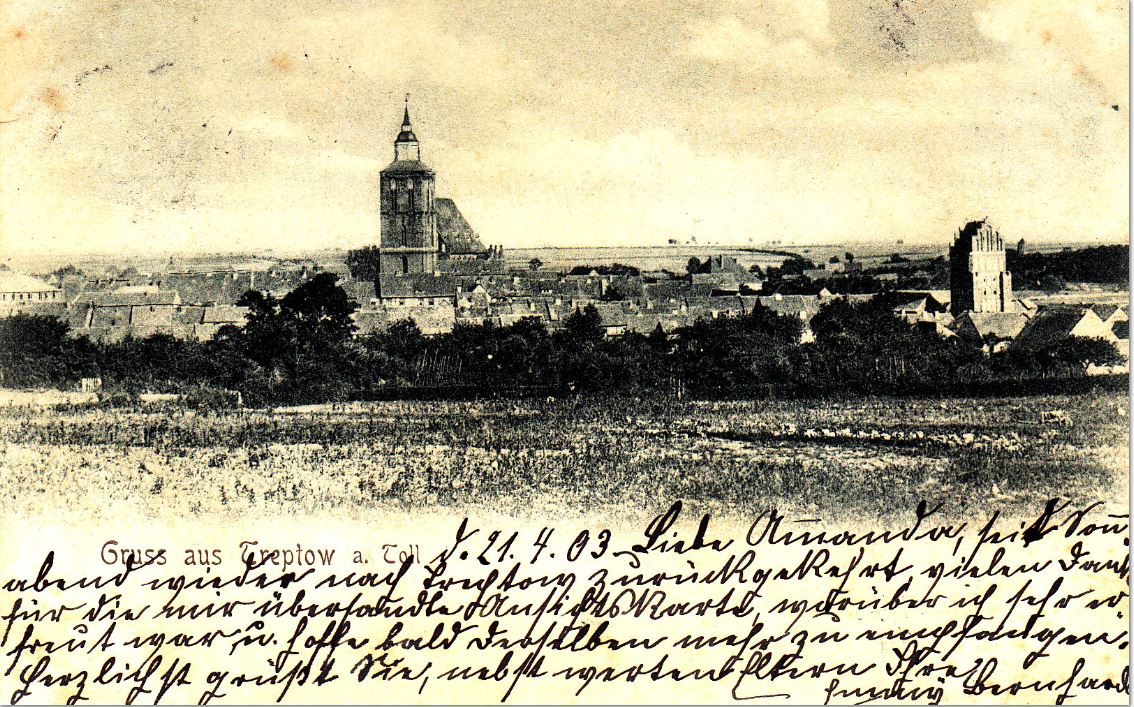 Gruss aus Treptow a. Toll
d. 21. 4. 03 Liebe Amanda, seit Sonn
abend wieder nach Treptow zurückgekehrt vielen Dank
für die mir übersandte Ansichtskarte, worüber ich sehr er
freut war, u. hoffe bald derselben mehr zu empfangen.
Herzlichst grüßt Sie, nebst werten Eltern Ihre
Bernhard